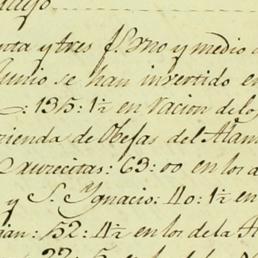 nta y tres f.s uno y medio
Junio se han invertido en
: 135: 1½ en Racion de lo
cienda de Obejas del Alam
Exurecitas: 63: 00 en los d
y S. Ygnacio: 40: 1½ en
gan: 152: 4½ en los de la A